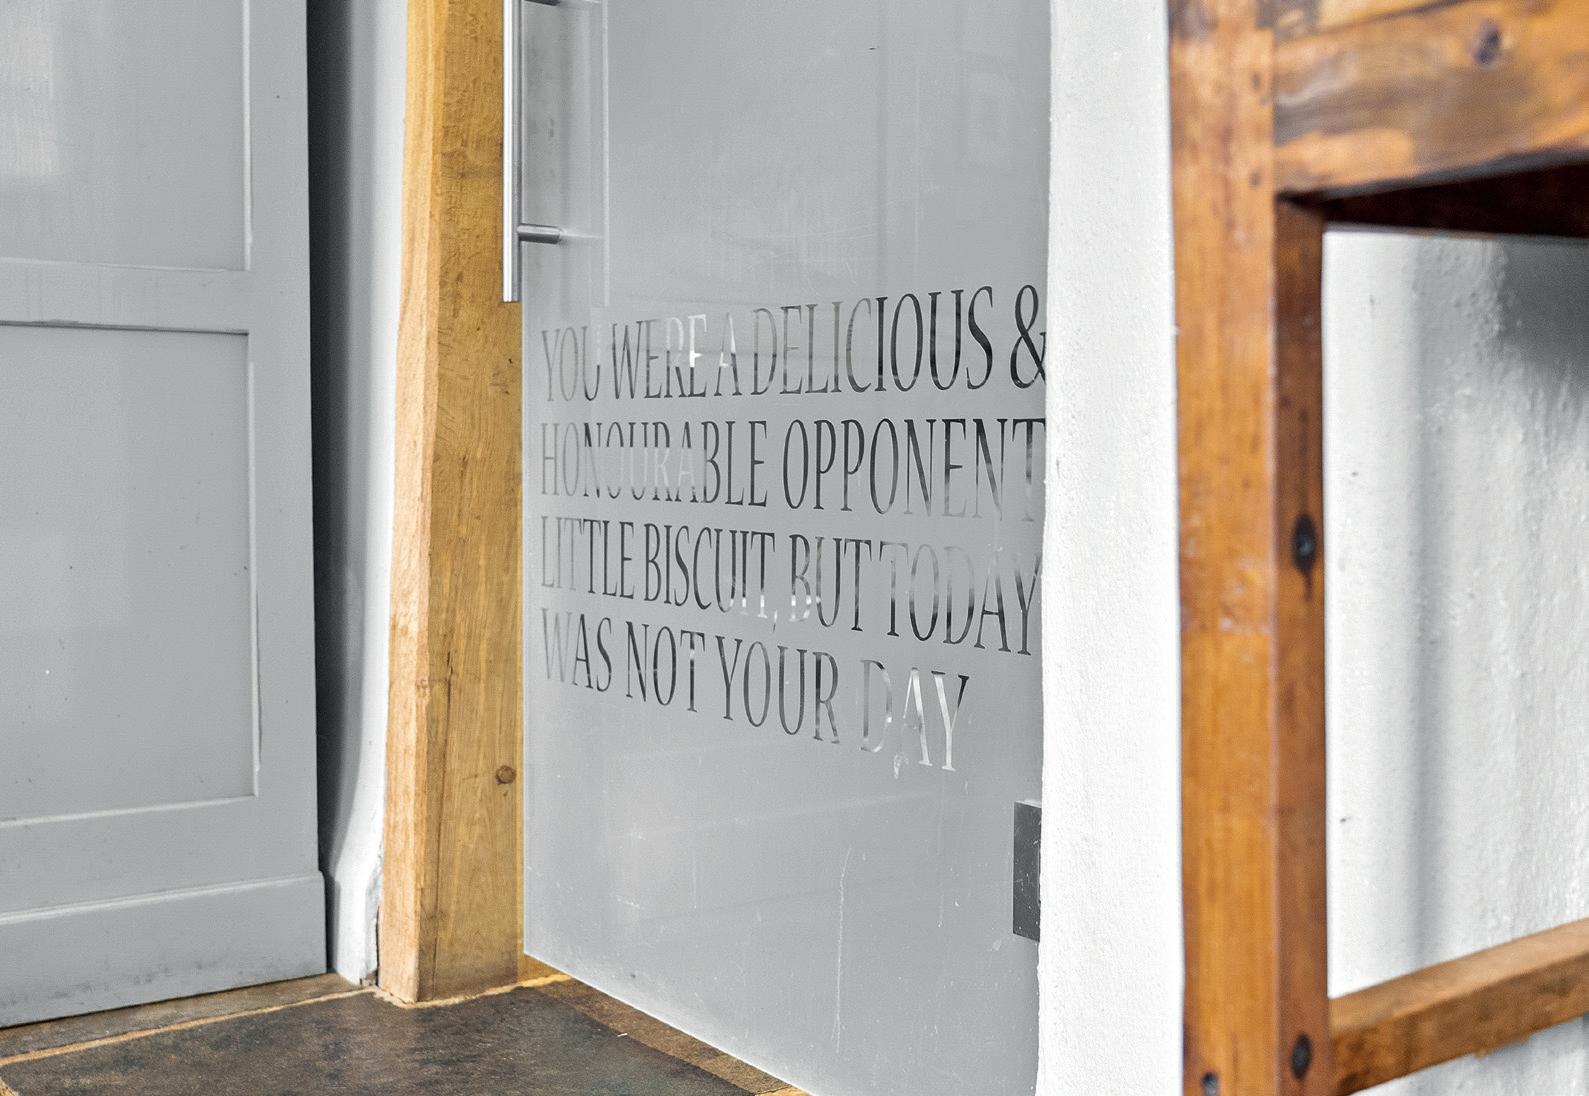 YOU WERE A DELICIOUS &
HONOURABLE OPPONENT
LITTLE BISCUIT, BUT TODAY
WAS NOT YOUR DAY